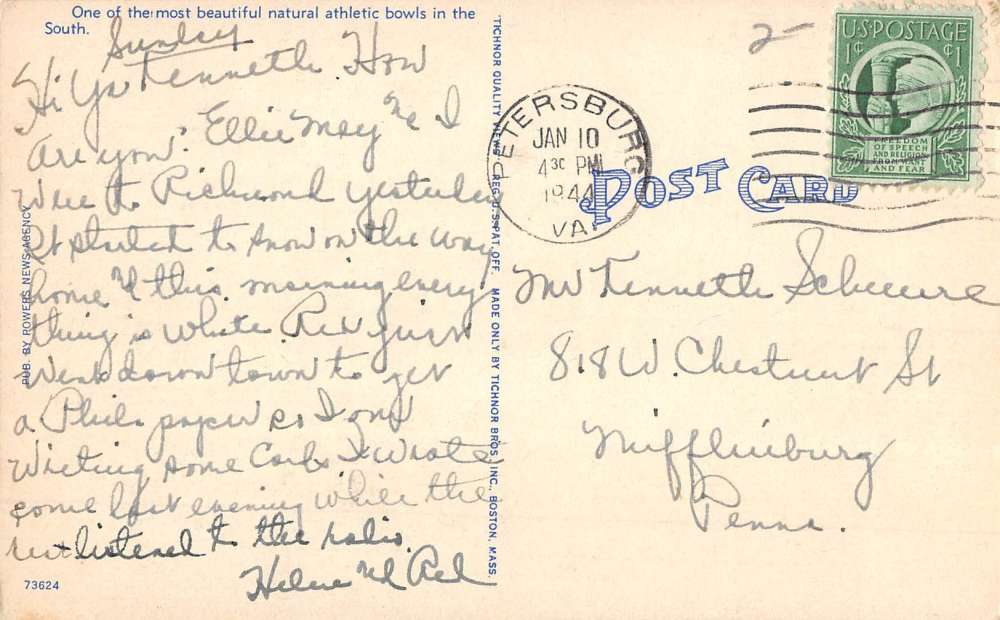 One of the most beautiful natural athletic bowls in the
South.
Sunday
Hi Ya Kenneth. How
Are you? Ellie May & I
Were to Richmond yesterday
It started to snow on the way
home & this morning every
thing is white. Red just
Went down town to get
a Phila paper so I am
Writing some Cards I Wrote
some last evening while the
rest listened to the radio.
Helene and Red
73624
PUB. BY POWERS NEWS AGENCY
TICHNOR QUALITY VIEWS REG. U. S. PAT. OFF. MADE ONLY BY TICHNOR BROS. INC., BOSTON, MASS.
PETERSBURG
JAN 10
4 30 PM
1944
VA.
POST CARD
2-
U.S. POSTAGE
1¢ ¢1
FREEDOM
OF SPEECH
AND RELIGION
FROM WANT
AND FEAR
Mr Kenneth
818 W. Chestnut St
Mifflinburg
Penna.